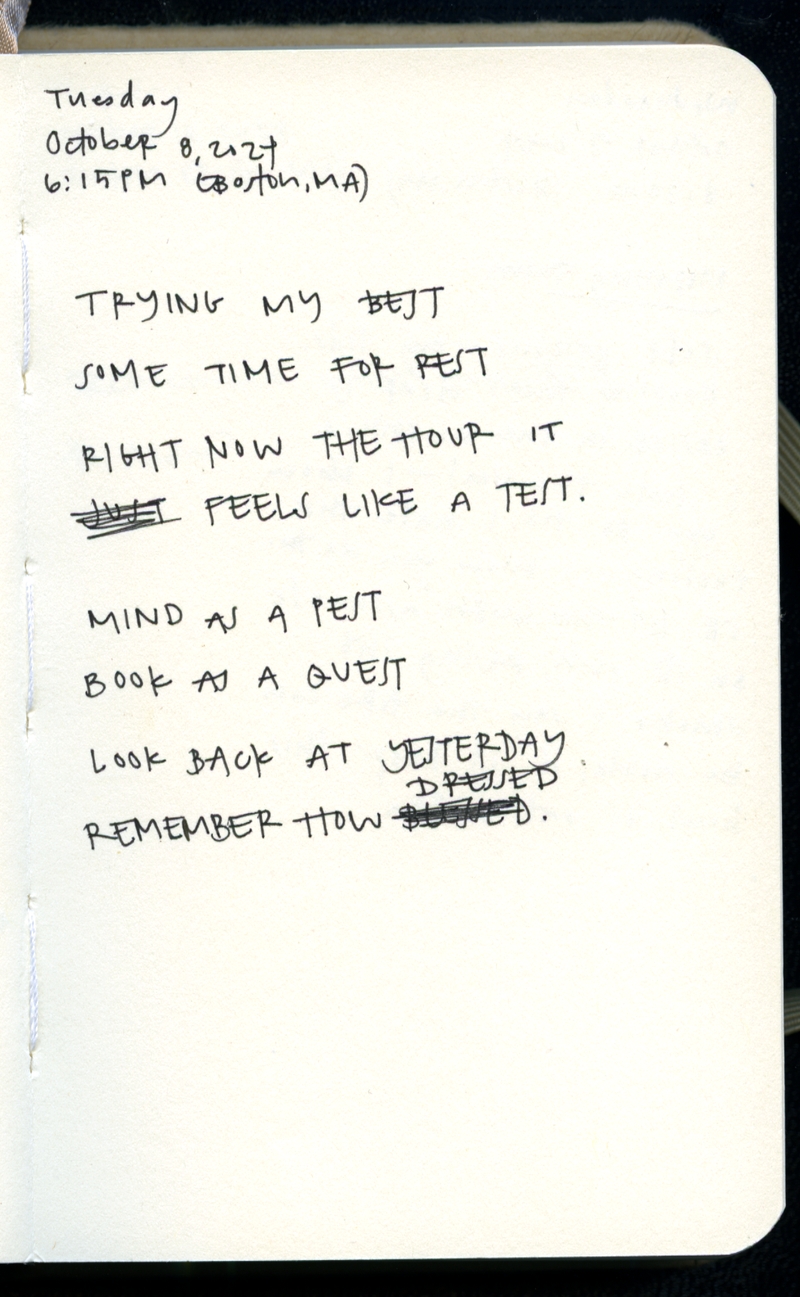 Tuesday
October 8, 2024
6:15PM (Boston, MA)
TRYING MY BEST
SOME TIME FOR REST
RIGHT NOW THE HOUR IT
JUST FEELS LIKE A TEST.
MIND AS A PEST
BOOK AS A QUEST
LOOK BACK AT YESTERDAY
DRESSED
REMEMBER HOW BLESSED.